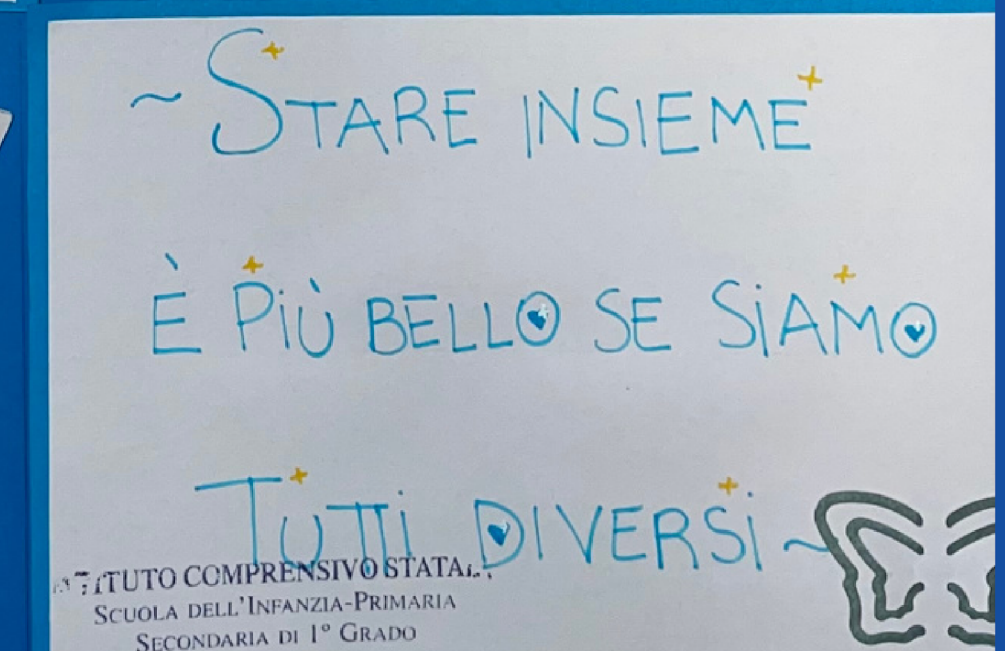 ~ STARE INSIEME
È PIÙ BELLO SE SIAMO
TUTTI DIVERSI ~
COMPRENSIVO
SCUOLA DELL'INFANZIA-PRIMARIA
SECONDARIA DI 1° GRADO